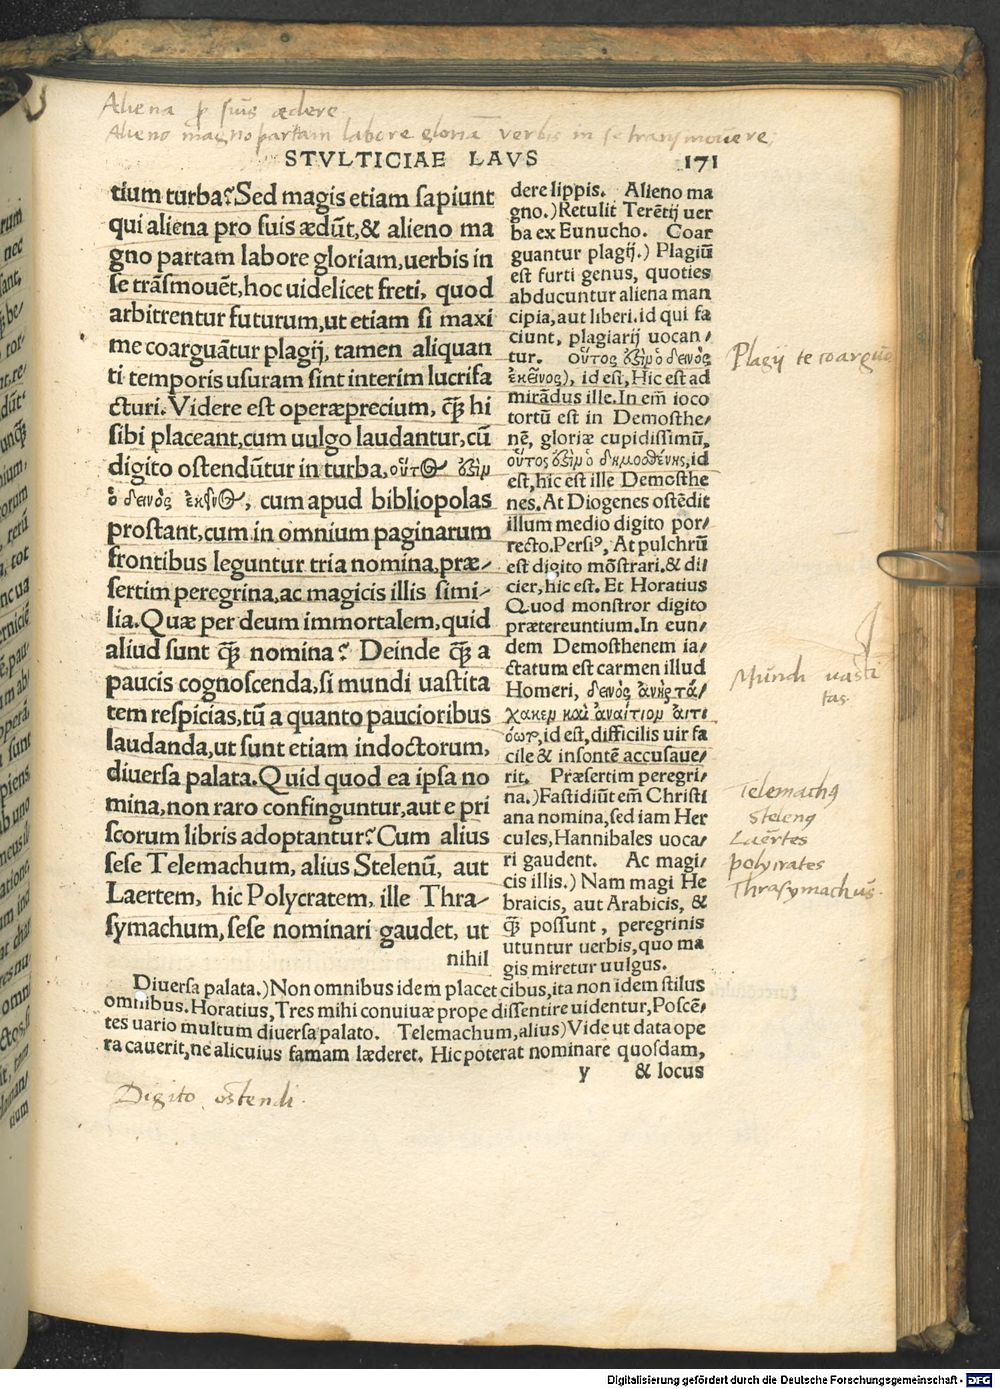 Aliena p suis ædere
Alieno magno partam labore gloriā verbis in se transmouere,
STVLTICIAE LAVS 171
tium turba? Sed magis etiam sapiunt
qui aliena pro suis ædūt, & alieno ma
gno partam labore gloriam, uerbis in
se trāsmouēt, hoc uidelicet freti, quod
arbitrentur futurum, ut etiam si maxi
me coarguātur plagij, tamen aliquan
ti temporis usuram sint interim lucrifa
cturi. Videre est operæprecium, q̄ȝ hi
sibi placeant, cum uulgo laudantur, cū
digito ostendūtur in turba, οὗτος ὄξιμ
ὁ δεινὸς ἐκεῖνος, cum apud bibliopolas
prostant, cum in omnium paginarum
frontibus leguntur tria nomina, præ-
sertim peregrina, ac magicis illis simi-
lia. Quæ per deum immortalem, quid
aliud sunt q̄ȝ nomina? Deinde q̄ȝ a
paucis cognoscenda, si mundi uastita
tem respicias, tū a quanto paucioribus
laudanda, ut sunt etiam indoctorum,
diuersa palata. Quid quod ea ipsa no
mina, non raro confinguntur, aut e pri
scorum libris adoptantur? Cum alius
sese Telemachum, alius Stelenū, aut
Laertem, hic Polycratem, ille Thra-
symachum, sese nominari gaudet, ut
nihil
dere lippis. Alieno ma
gno.) Retulit Terētij uer
ba ex Eunucho. Coar
guantur plagij.) Plagiū
est furti genus, quoties
abducuntur aliena man
cipia, aut liberi. id qui fa
ciunt, plagiarij uocan/
tur. οὗτος ὄξιμ ὁ δεινὸς
ἐκεῖνος), id est, Hic est ad
mirādus ille. In em̄ ioco
tortū est in Demosthe/
nē, gloriæ cupidissimū,
οὗτος ὄξιμ ὁ δημοσθένης, id
est, hic est ille Demosthe
nes. At Diogenes ostēdit
illum medio digito por/
recto. Persi⁹, At pulchrū
est digito mōstrari, & di/
cier, hic est. Et Horatius
Quod monstror digito
prætereuntium. In eun/
dem Demosthenem ia/
ctatum est carmen illud
Homeri, δεινὸς ἀνὴρ τά/
χα κεμ καὶ ἀναίτιομ αἰτι
όῳτο, id est, difficilis uir fa
cile & insontē accusaue/
rit. Præsertim peregri/
na.) Fastidiūt em̄ Christi
ana nomina, sed iam Her
cules, Hannibales uoca/
ri gaudent. Ac magi/
cis illis.) Nam magi He
braicis, aut Arabicis, &
q̄ȝ possunt, peregrinis
utuntur uerbis, quo ma
gis miretur uulgus.
Diuersa palata.) Non omnibus idem placet cibus, ita non idem stilus
omnibus. Horatius, Tres mihi conuiuæ prope dissentire uidentur, Poscē/
tes uario multum diuersa palato. Telemachum, alius) Vide ut data ope
ra cauerit, ne alicuius famam læderet. Hic poterat nominare quosdam,
y & locus
Plagij te coargue
Mundi uasti
tas.
Telemach9
Stelen9
Laertes
Polycrates
Thrasymachus.
Digito ostendi.
Digitalisierung gefördert durch die Deutsche Forschungsgemeinschaft - DFG